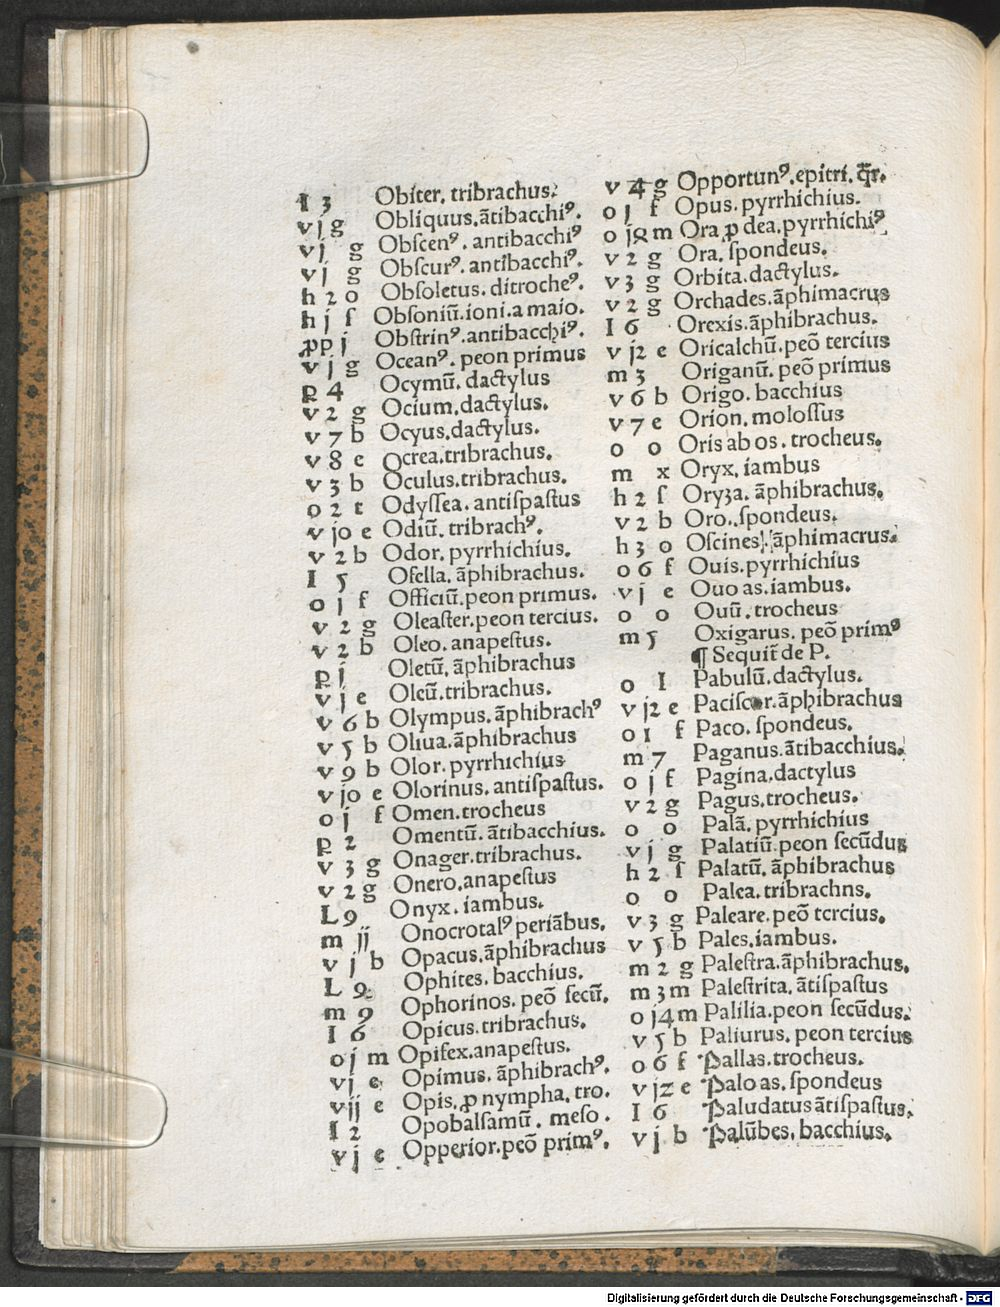 I 3 Obiter. tribrachus.
v j g Obliquus. ãtibacchiꝰ.
v j g Obscenꝰ. antibacchiꝰ
v j g Obscurꝰ. antibacchiꝰ.
h 2 o Obsoletus. ditrocheꝰ.
h j f Obsoniũ. ioni. a maio.
ꝓp j Obstrinꝰ. antibacchiꝰ.
v j g Oceanꝰ. peon primus
p 4 Ocymũ. dactylus
v 2 g Ocium. dactylus.
v 7 b Ocyus. dactylus.
v 8 e Ocrea. tribrachus.
v 3 b Oculus. tribrachus.
o 2 t Odyssea. antispastus
v j0 e Odiũ. tribrachꝰ.
v 2 b Odor. pyrrhichius.
I 5 Ofella. ãphibrachus.
o j f Officiũ. peon primus.
v 2 g Oleaster. peon tercius.
v 2 b Oleo. anapestus.
p j Oletũ. ãphibrachus
v j e Oleũ. tribrachus.
v 6 b Olympus. ãphibrachꝰ
v 5 b Oliua. ãphibrachus
v 9 b Olor. pyrrhichius
v j0 e Olorinus. antispastus.
o j f Omen. trocheus
p 2 Omentũ. ãtibacchius.
v 3 g Onager. tribrachus.
v 2 g Onero. anapestus
L 9 Onyx. iambus.
m jj Onocrotalꝰ periãbus.
v j b Opacus. ãphibrachus
L 9 Ophites. bacchius.
m 9 Ophorinos. peõ secũ.
I 6 Opicus. tribrachus.
o j m Opifex. anapestus.
v j e Opimus. ãphibrachꝰ.
v jj e Opis. ꝓ nympha. tro.
I 2 Opobalsamũ. meso.
v j e Opperior. peõ primꝰ.
v 4 g Opportunꝰ. epitri. q̃r.
o j f Opus. pyrrhichius.
o j8 m Ora ꝓ dea. pyrrhichiꝰ
v 2 g Ora. spondeus.
v 3 g Orbita. dactylus.
v 2 g Orchades. ãphimacrus
I 6 Orexis. ãphibrachus.
v j2 e Oricalchũ. peõ tercius
m 3 Origanũ. peõ primus
v 6 b Origo. bacchius
v 7 e Orion. molossus
o o Oris ab os. trocheus.
m x Oryx. iambus
h 2 f Oryza. ãphibrachus.
v 2 b Oro. spondeus.
h 3 o Oscines. ãphimacrus.
o 6 f Ouis. pyrrhichius
v j e Ouo as. iambus.
o o Ouũ. trocheus
m 5 Oxigarus. peõ primꝰ
¶ Sequit̃ de P.
o I Pabulũ. dactylus.
v j2 e Paciscor. ãphibrachus
o 1 f Paco. spondeus.
m 7 Paganus. ãtibacchius.
o j f Pagina. dactylus
v 2 g Pagus. trocheus.
o o Palã. pyrrhichius
v j g Palatiũ. peon secũdus
h 2 f Palatũ. ãphibrachus
o o Palea. tribrachns.
v 3 g Paleare. peõ tercius.
v 5 b Pales. iambus.
m 2 g Palestra. ãphibrachus.
m 3 m Palestrita. ãtispastus
o j4 m Palilia. peon secũdus.
v 5 b Paliurus. peon tercius
o 6 f Pallas. trocheus.
v j2 e Palo as. spondeus
I 6 Paludatus ãtispastus.
v j b Palũbes. bacchius.
Digitalisierung gefördert durch die Deutsche Forschungsgemeinschaft - DFG